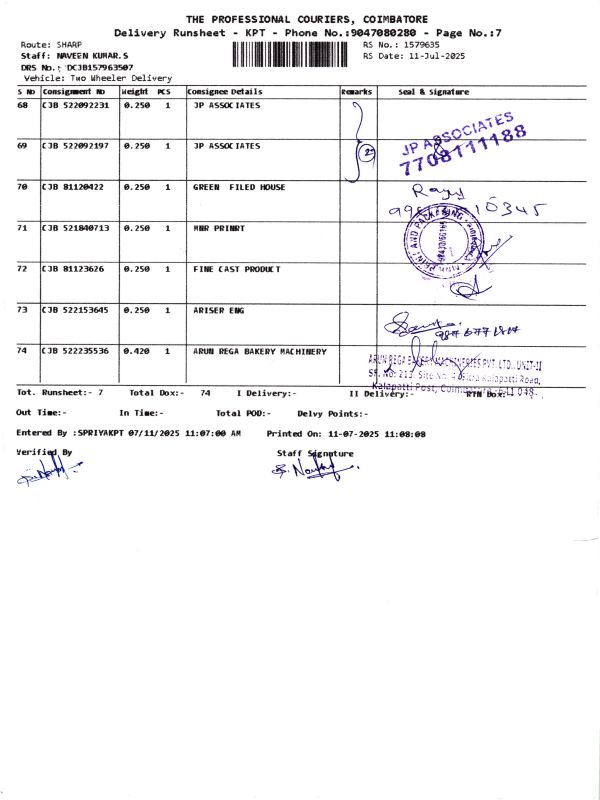 THE PROFESSIONAL COURIERS, COIMBATORE
Delivery Runsheet - KPT - Phone No.:9047080280 - Page No.:7
Route: SHARP RS No.: 1579635
Staff: NAVEEN KUMAR.S RS Date: 11-Jul-2025
DRS No.: DCJB157963507
Vehicle: Two Wheeler Delivery
S No Consignment No Weight PCS Consignee Details Remarks Seal & Signature
68 CJB 522092231 0.250 1 JP ASSOCIATES
69 CJB 522092197 0.250 1 JP ASSOCIATES 2 JP ASSOCIATES
7708111188
70 CJB 81120422 0.250 1 GREEN FILED HOUSE
10345
71 CJB 521840713 0.250 1 MNR PRINRT PRINT AND PACKAGING
72 CJB 81123626 0.250 1 FINE CAST PRODUCT
73 CJB 522153645 0.250 1 ARISER ENG
74 CJB 522235536 0.420 1 ARUN REGA BAKERY MACHINERY ARUN REGA BAKERY MACHINERIES PVT. LTD., UNIT-II
SF. NO: 213, Site No. Kalapatti Road,
Kalapatti Post, Coimbatore - 641 048.
Tot. Runsheet:- 7 Total Dox:- 74 I Delivery:- II Delivery:- RTN Dox:-
Out Time:- In Time:- Total POD:- Delvy Points:-
Entered By :SPRIYAKPT 07/11/2025 11:07:00 AM Printed On: 11-07-2025 11:08:08
Verified By Staff Signature